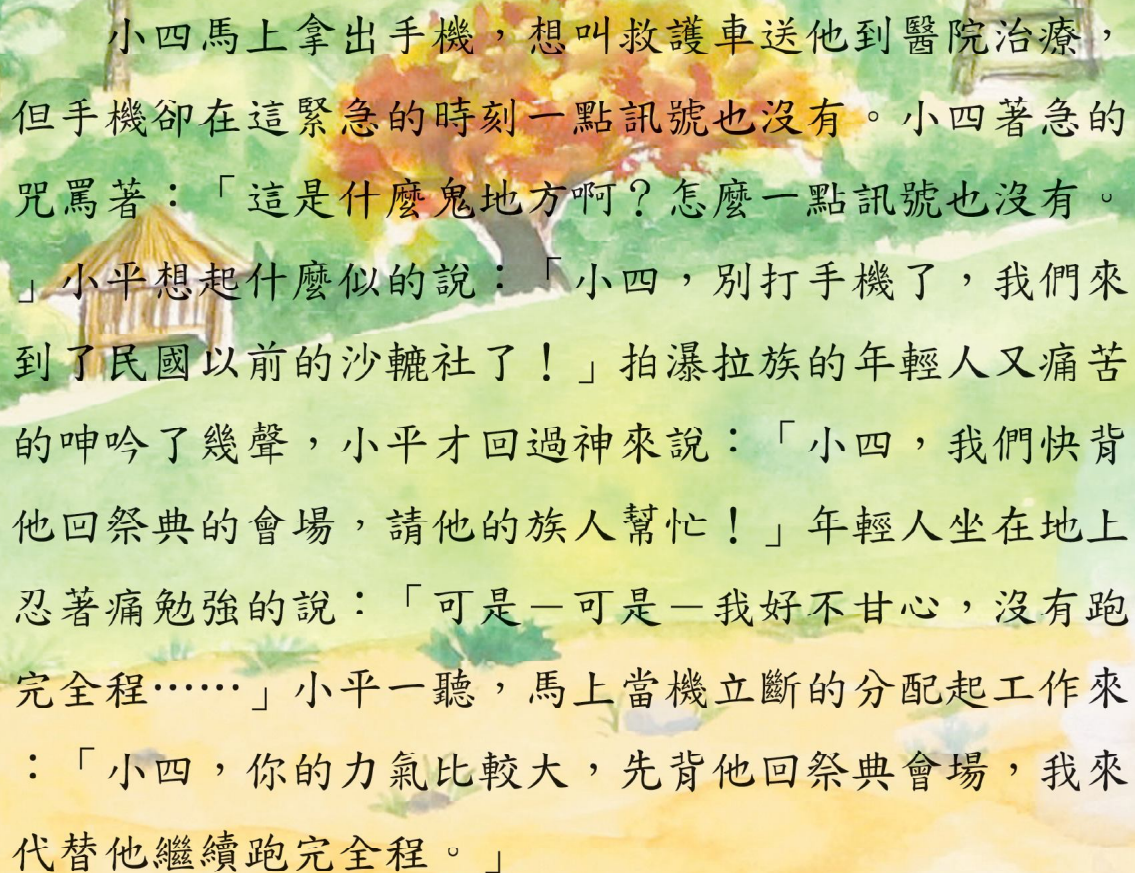 小四馬上拿出手機，想叫救護車送他到醫院治療，
但手機卻在這緊急的時刻一點訊號也沒有。小四著急的
咒罵著：「這是什麼鬼地方啊？怎麼一點訊號也沒有。
」小平想起什麼似的說：「小四，別打手機了，我們來
到了民國以前的沙轆社了！」拍瀑拉族的年輕人又痛苦
的呻吟了幾聲，小平才回過神來說：「小四，我們快背
他回祭典的會場，請他的族人幫忙！」年輕人坐在地上
忍著痛勉強的說：「可是－可是－我好不甘心，沒有跑
完全程……」小平一聽，馬上當機立斷的分配起工作來
：「小四，你的力氣比較大，先背他回祭典會場，我來
代替他繼續跑完全程。」